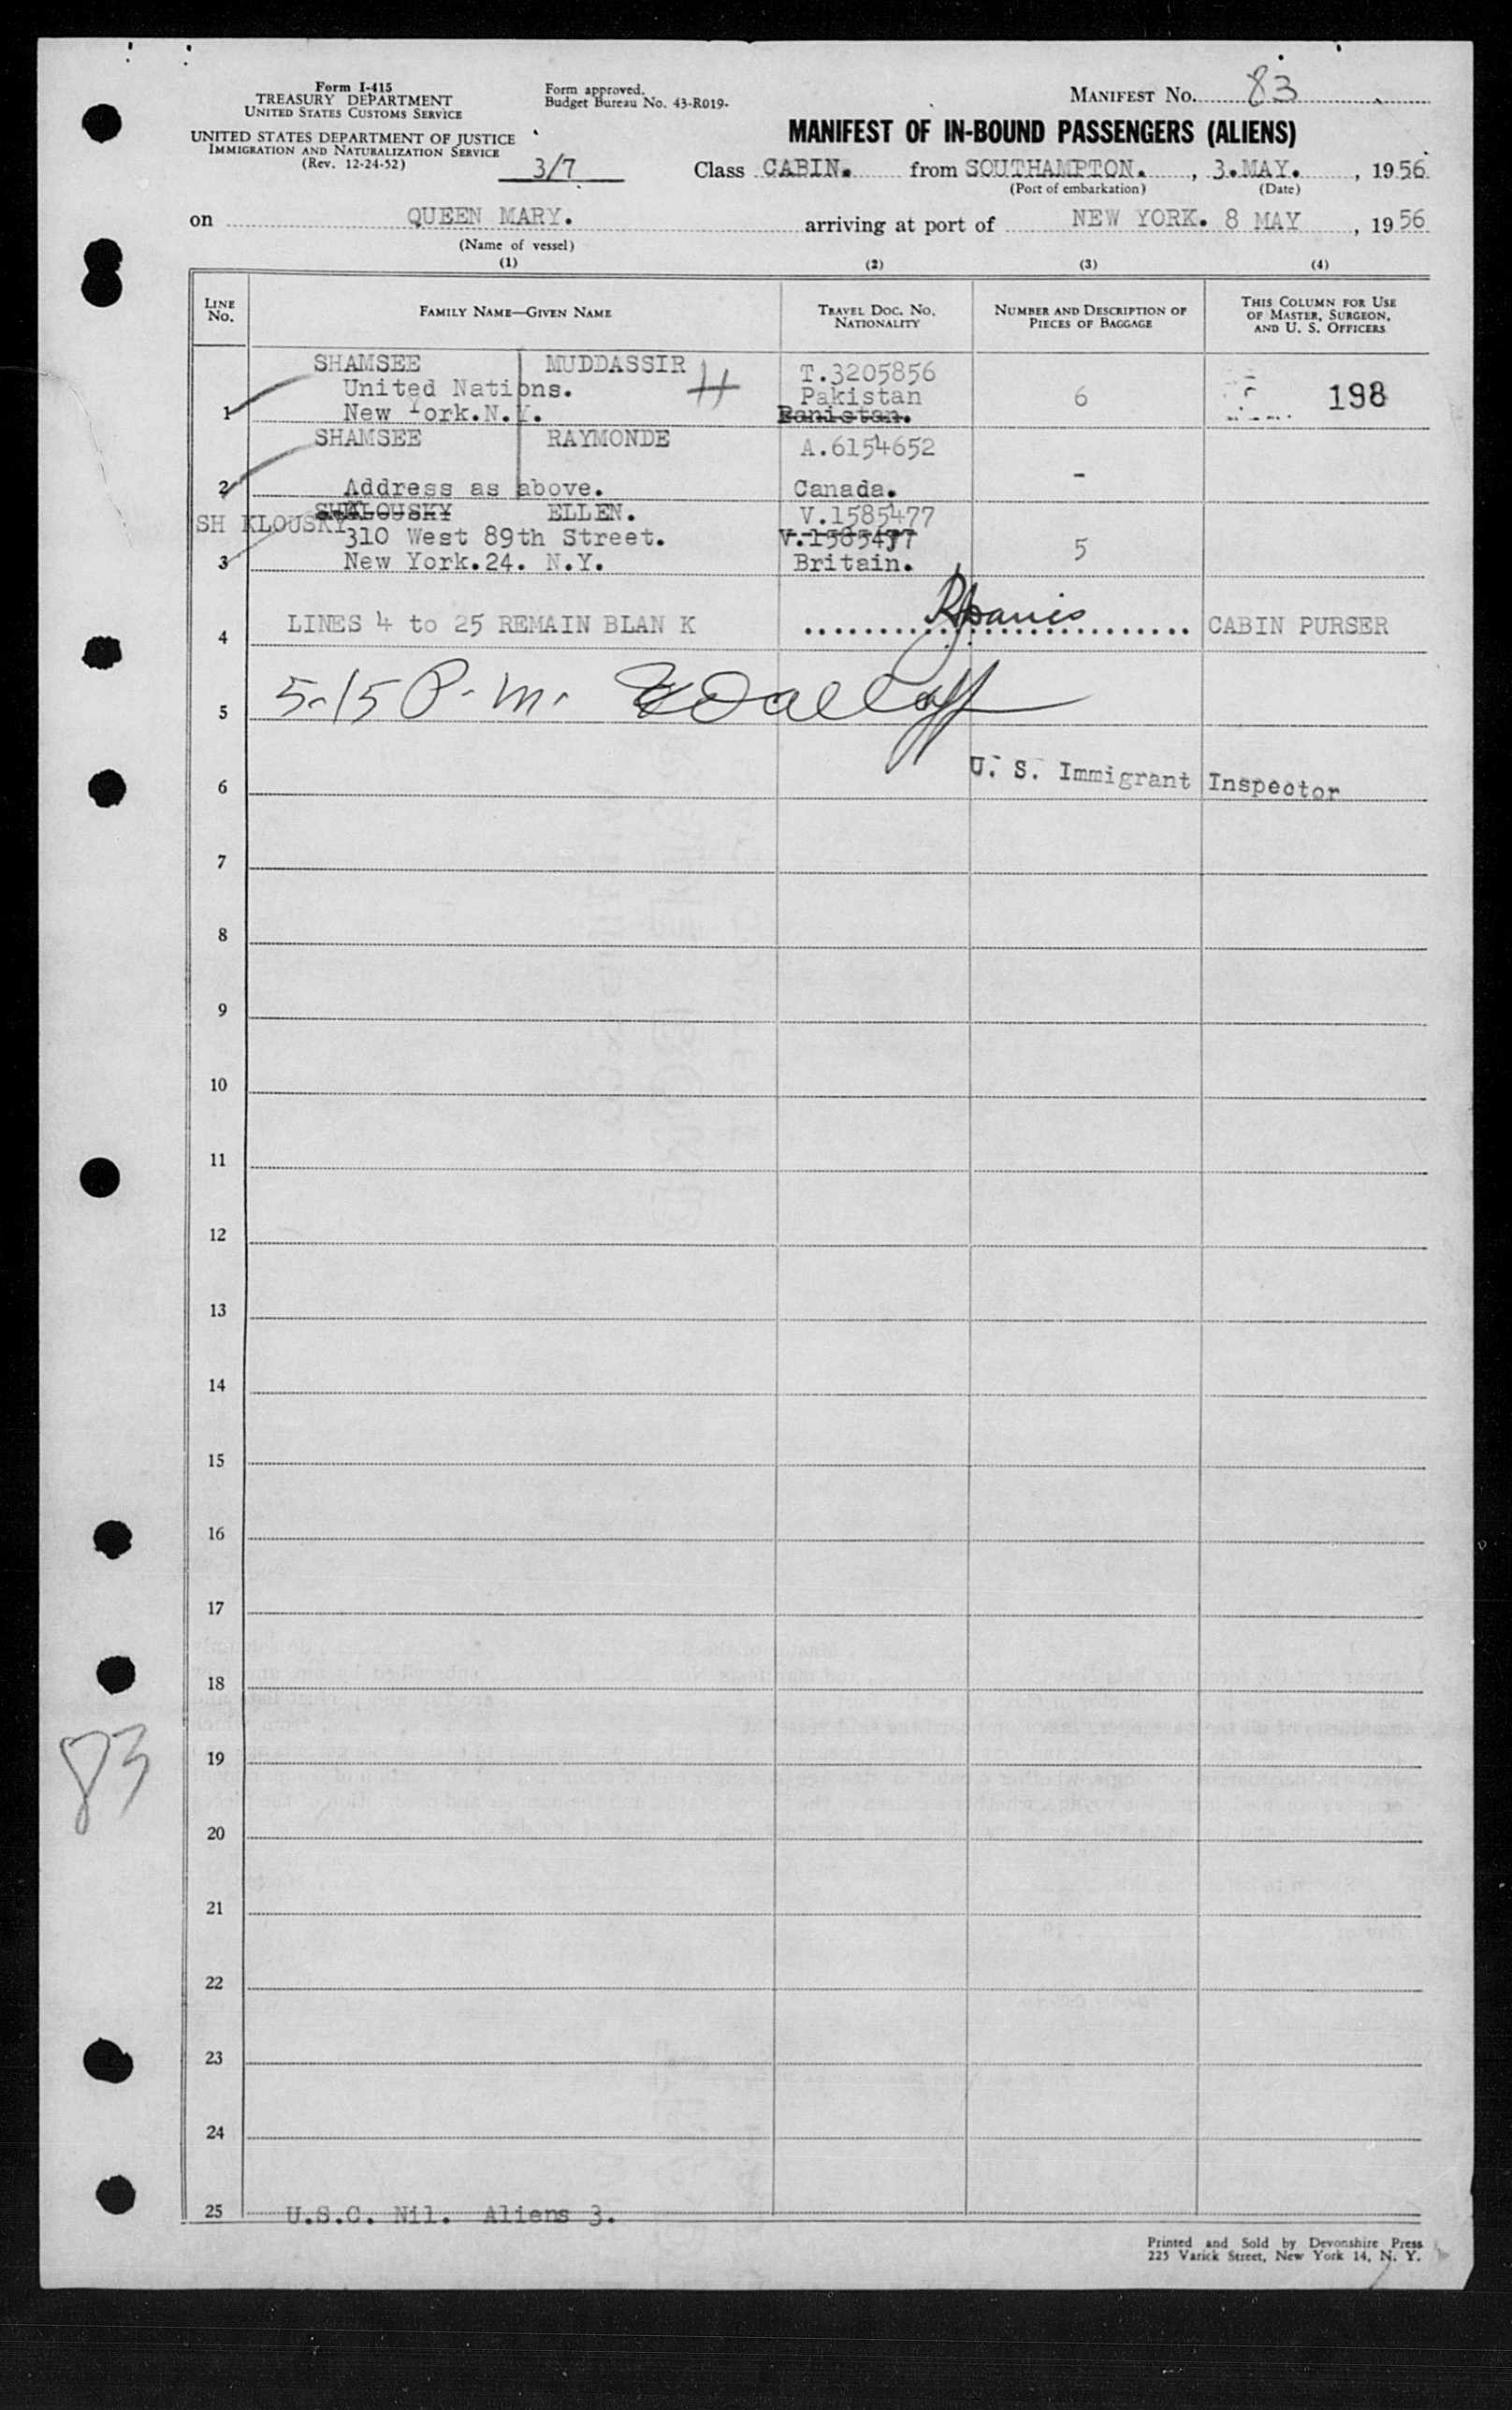 Form I-415
TREASURY DEPARTMENT
UNITED STATES CUSTOMS SERVICE
UNITED STATES DEPARTMENT OF JUSTICE
IMMIGRATION AND NATURALIZATION SERVICE
(Rev. 12-24-52)
3/7
Form approved.
Budget Bureau No. 43-R019-
MANIFEST NO. 83
MANIFEST OF IN-BOUND PASSENGERS (ALIENS)
Class CABIN. from SOUTHAMPTON. , 3.MAY. , 1956
(Port of embarkation) (Date)
on QUEEN MARY. arriving at port of NEW YORK. 8 MAY , 1956
(Name of vessel)
(1) (2) (3) (4)
LINE NO.
FAMILY NAME—GIVEN NAME
TRAVEL DOC. NO. NATIONALITY
NUMBER AND DESCRIPTION OF PIECES OF BAGGAGE
THIS COLUMN FOR USE OF MASTER, SURGEON, AND U. S. OFFICERS
SHAMSEE MUDDASSIR T.3205856
United Nations. Pakistan 6 198
1 New York.N.Y. Panistan.
SHAMSEE RAYMONDE A.6154652
2 Address as above. Canada. -
SHKLOUSKY ELLEN. V.1585477
SH KLOUSKY 310 West 89th Street. V.1585477 5
3 New York.24. N.Y. Britain.
4 LINES 4 to 25 REMAIN BLAN K CABIN PURSER
5 5-15 P.m.
6 U. S. Immigrant Inspector
7
8
9
10
11
12
13
14
15
16
17
18
19
83
20
21
22
23
24
25 U.S.C. Nil. Aliens 3.
Printed and Sold by Devonshire Press
225 Varick Street, New York 14, N. Y.